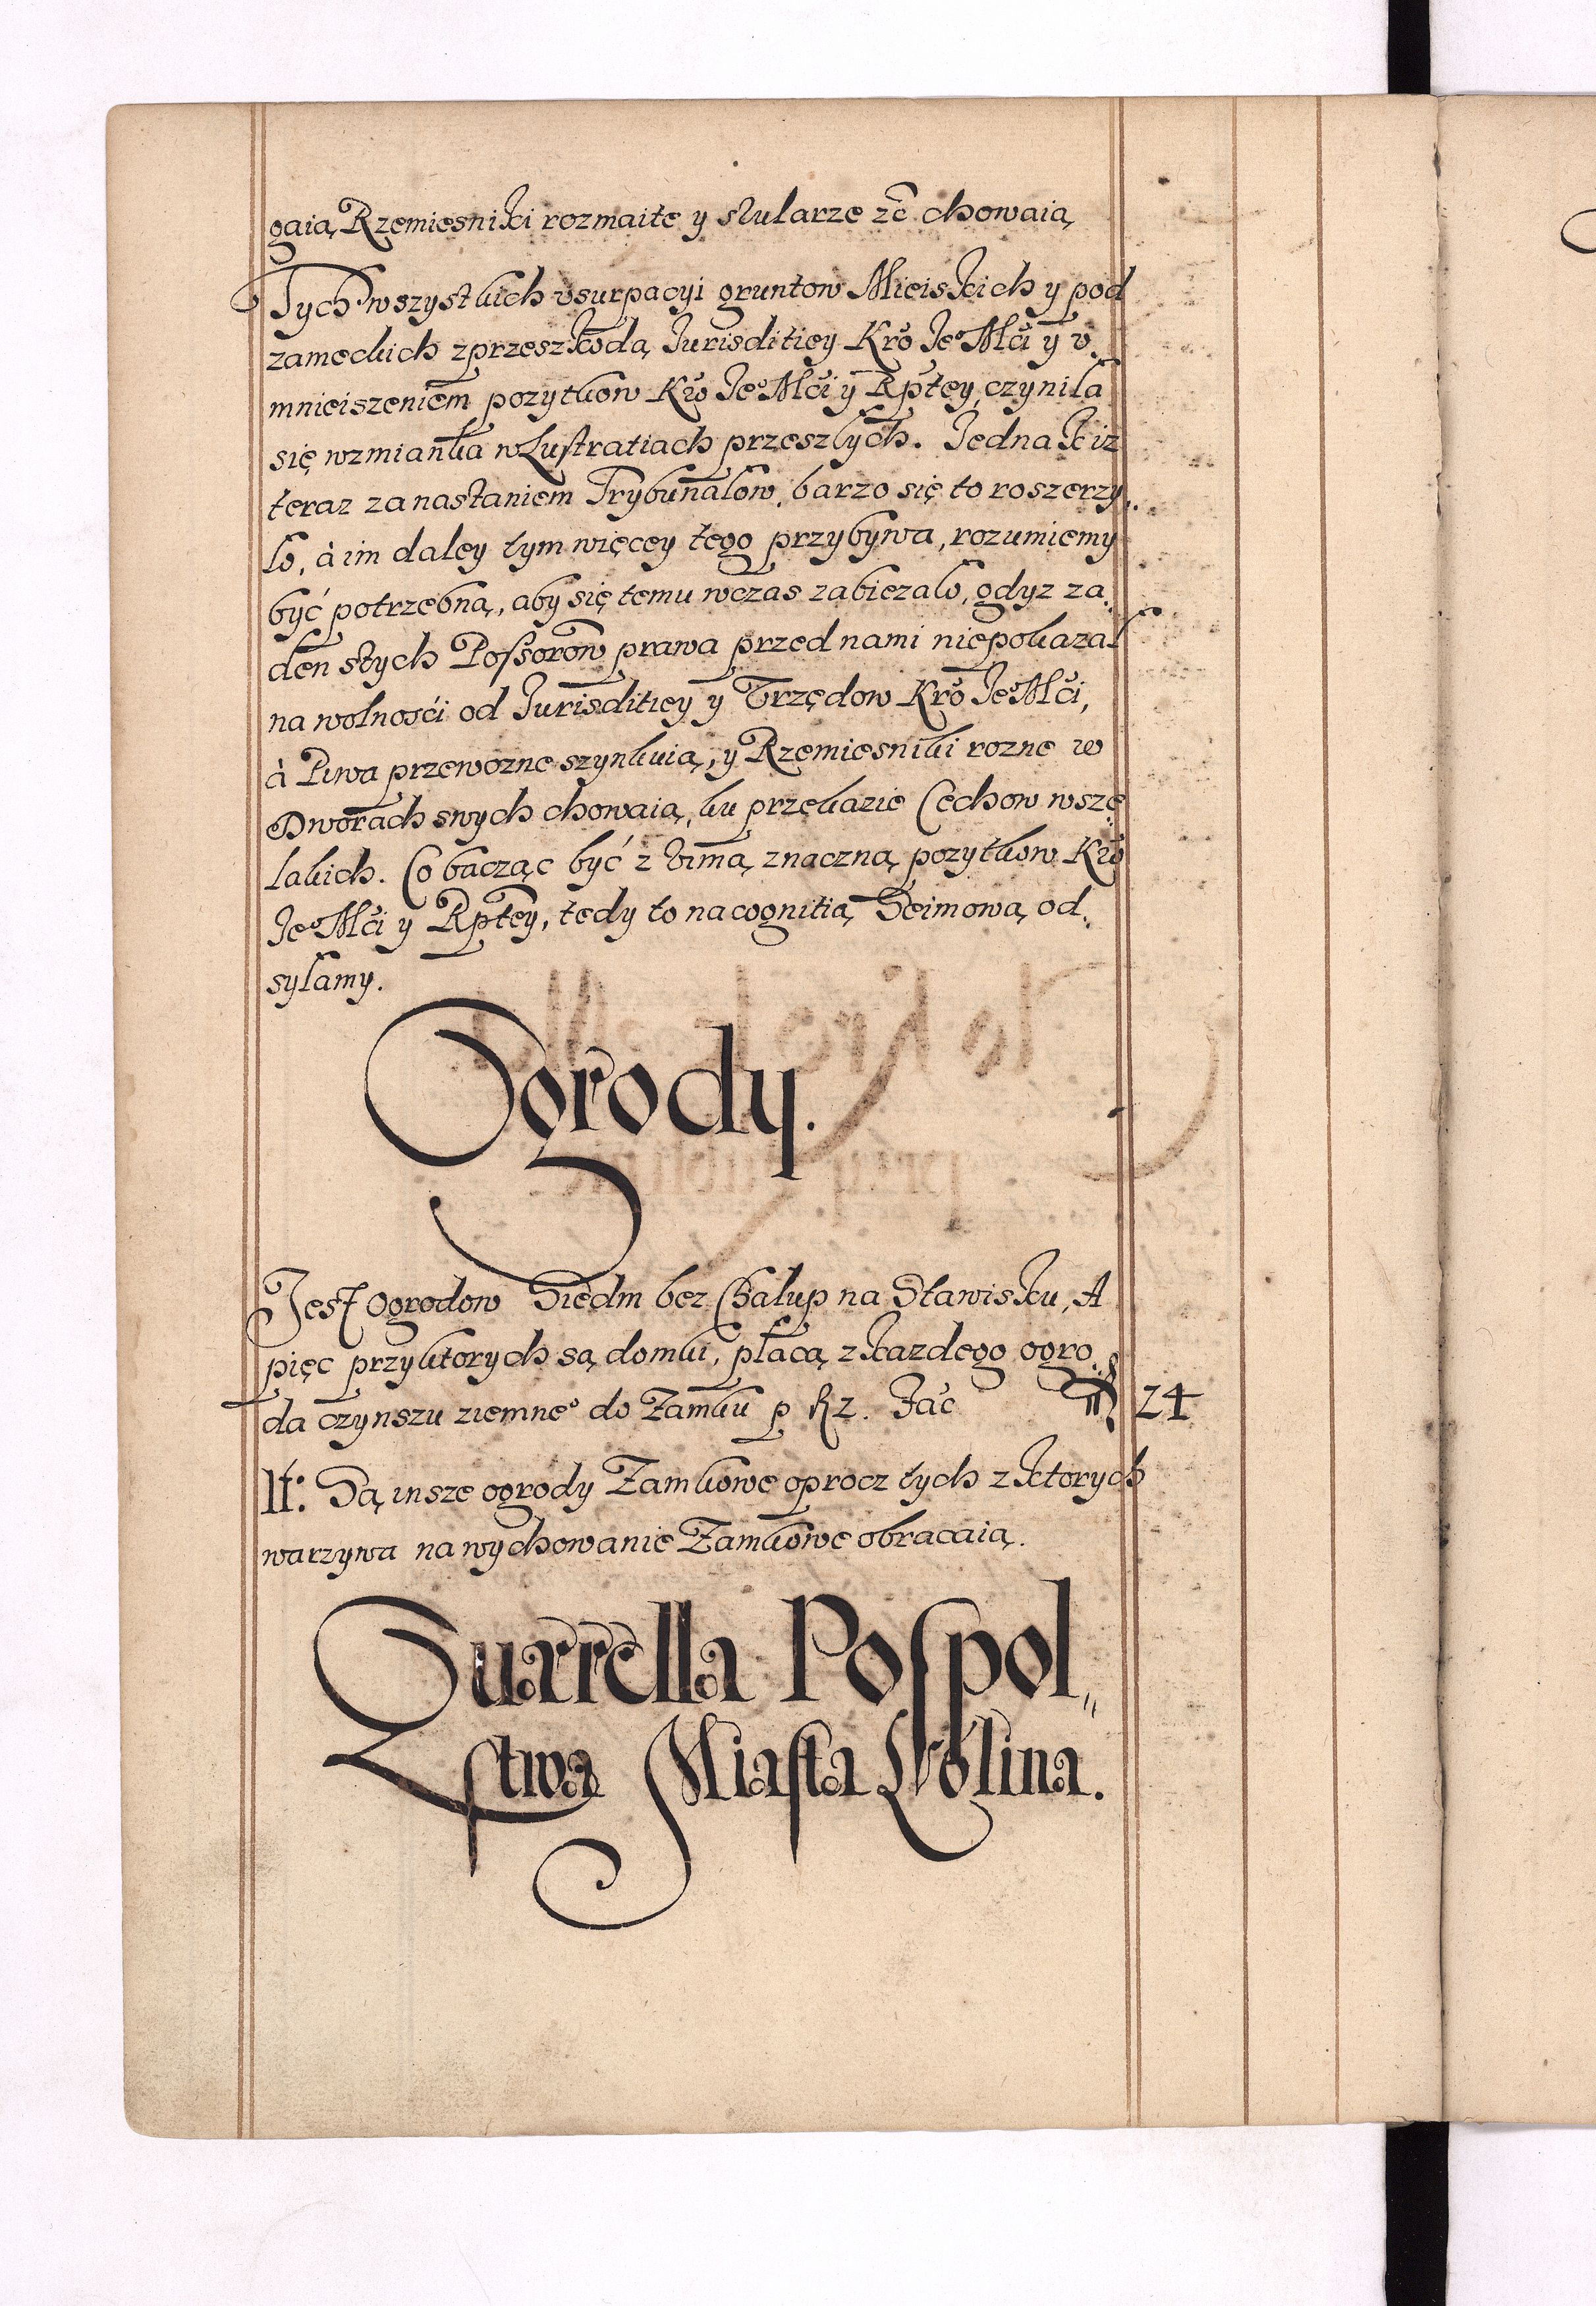 gaią, Rzemiesniki rozmaite y stularze zč chowaią
Tych wszystkich vsurpacyi gruntow Mieiskich y pod
zameckich zprzeszkodą Iurisditiey Kro Je° Mči y v,
mnieiszeniem pozytkow Kro Je° Mči y Rptey, czyniła
się wzmianka w Lustratiach przeszłych. Jednak iz
teraz za nastaniem Trybunałow, barzo się to roszerzy,,
ło, à im daley tym więcey tego przybywa, rozumiemy
być potrzebną, aby się temu wczas zabiezało, gdyz za,,
den stych Possorow prawa przed nami niepokazał
na wolnośći od Iurisditiey y Vrzędow Kro Je° Mči,
à Piwa przewozne szynkuią, y Rzemiesniki rozne w
Dworach swych chowaią, ku przekazie Cechow wsze,,
lakich. Co bacząc być z vimą znaczną pozytkow Kro
Je° Mči y Rptey, tedy to na cognitią Seimową od,,
syłamy.
Ogrody.
Jest ogrodow Siedm bez Chałup na Stawisku, A
pięc przyktorych są domki, płacą z kazdego ogro,,
da czynszu ziemne° do Zamku p f 2. Fač 24
It: Są insze ogrody Zamkowe oprocz tych z ktorych
warzywa na wychowanie Zamkowe obracaią.
Quærella Pospol,,
stwa Miasta Lublina.